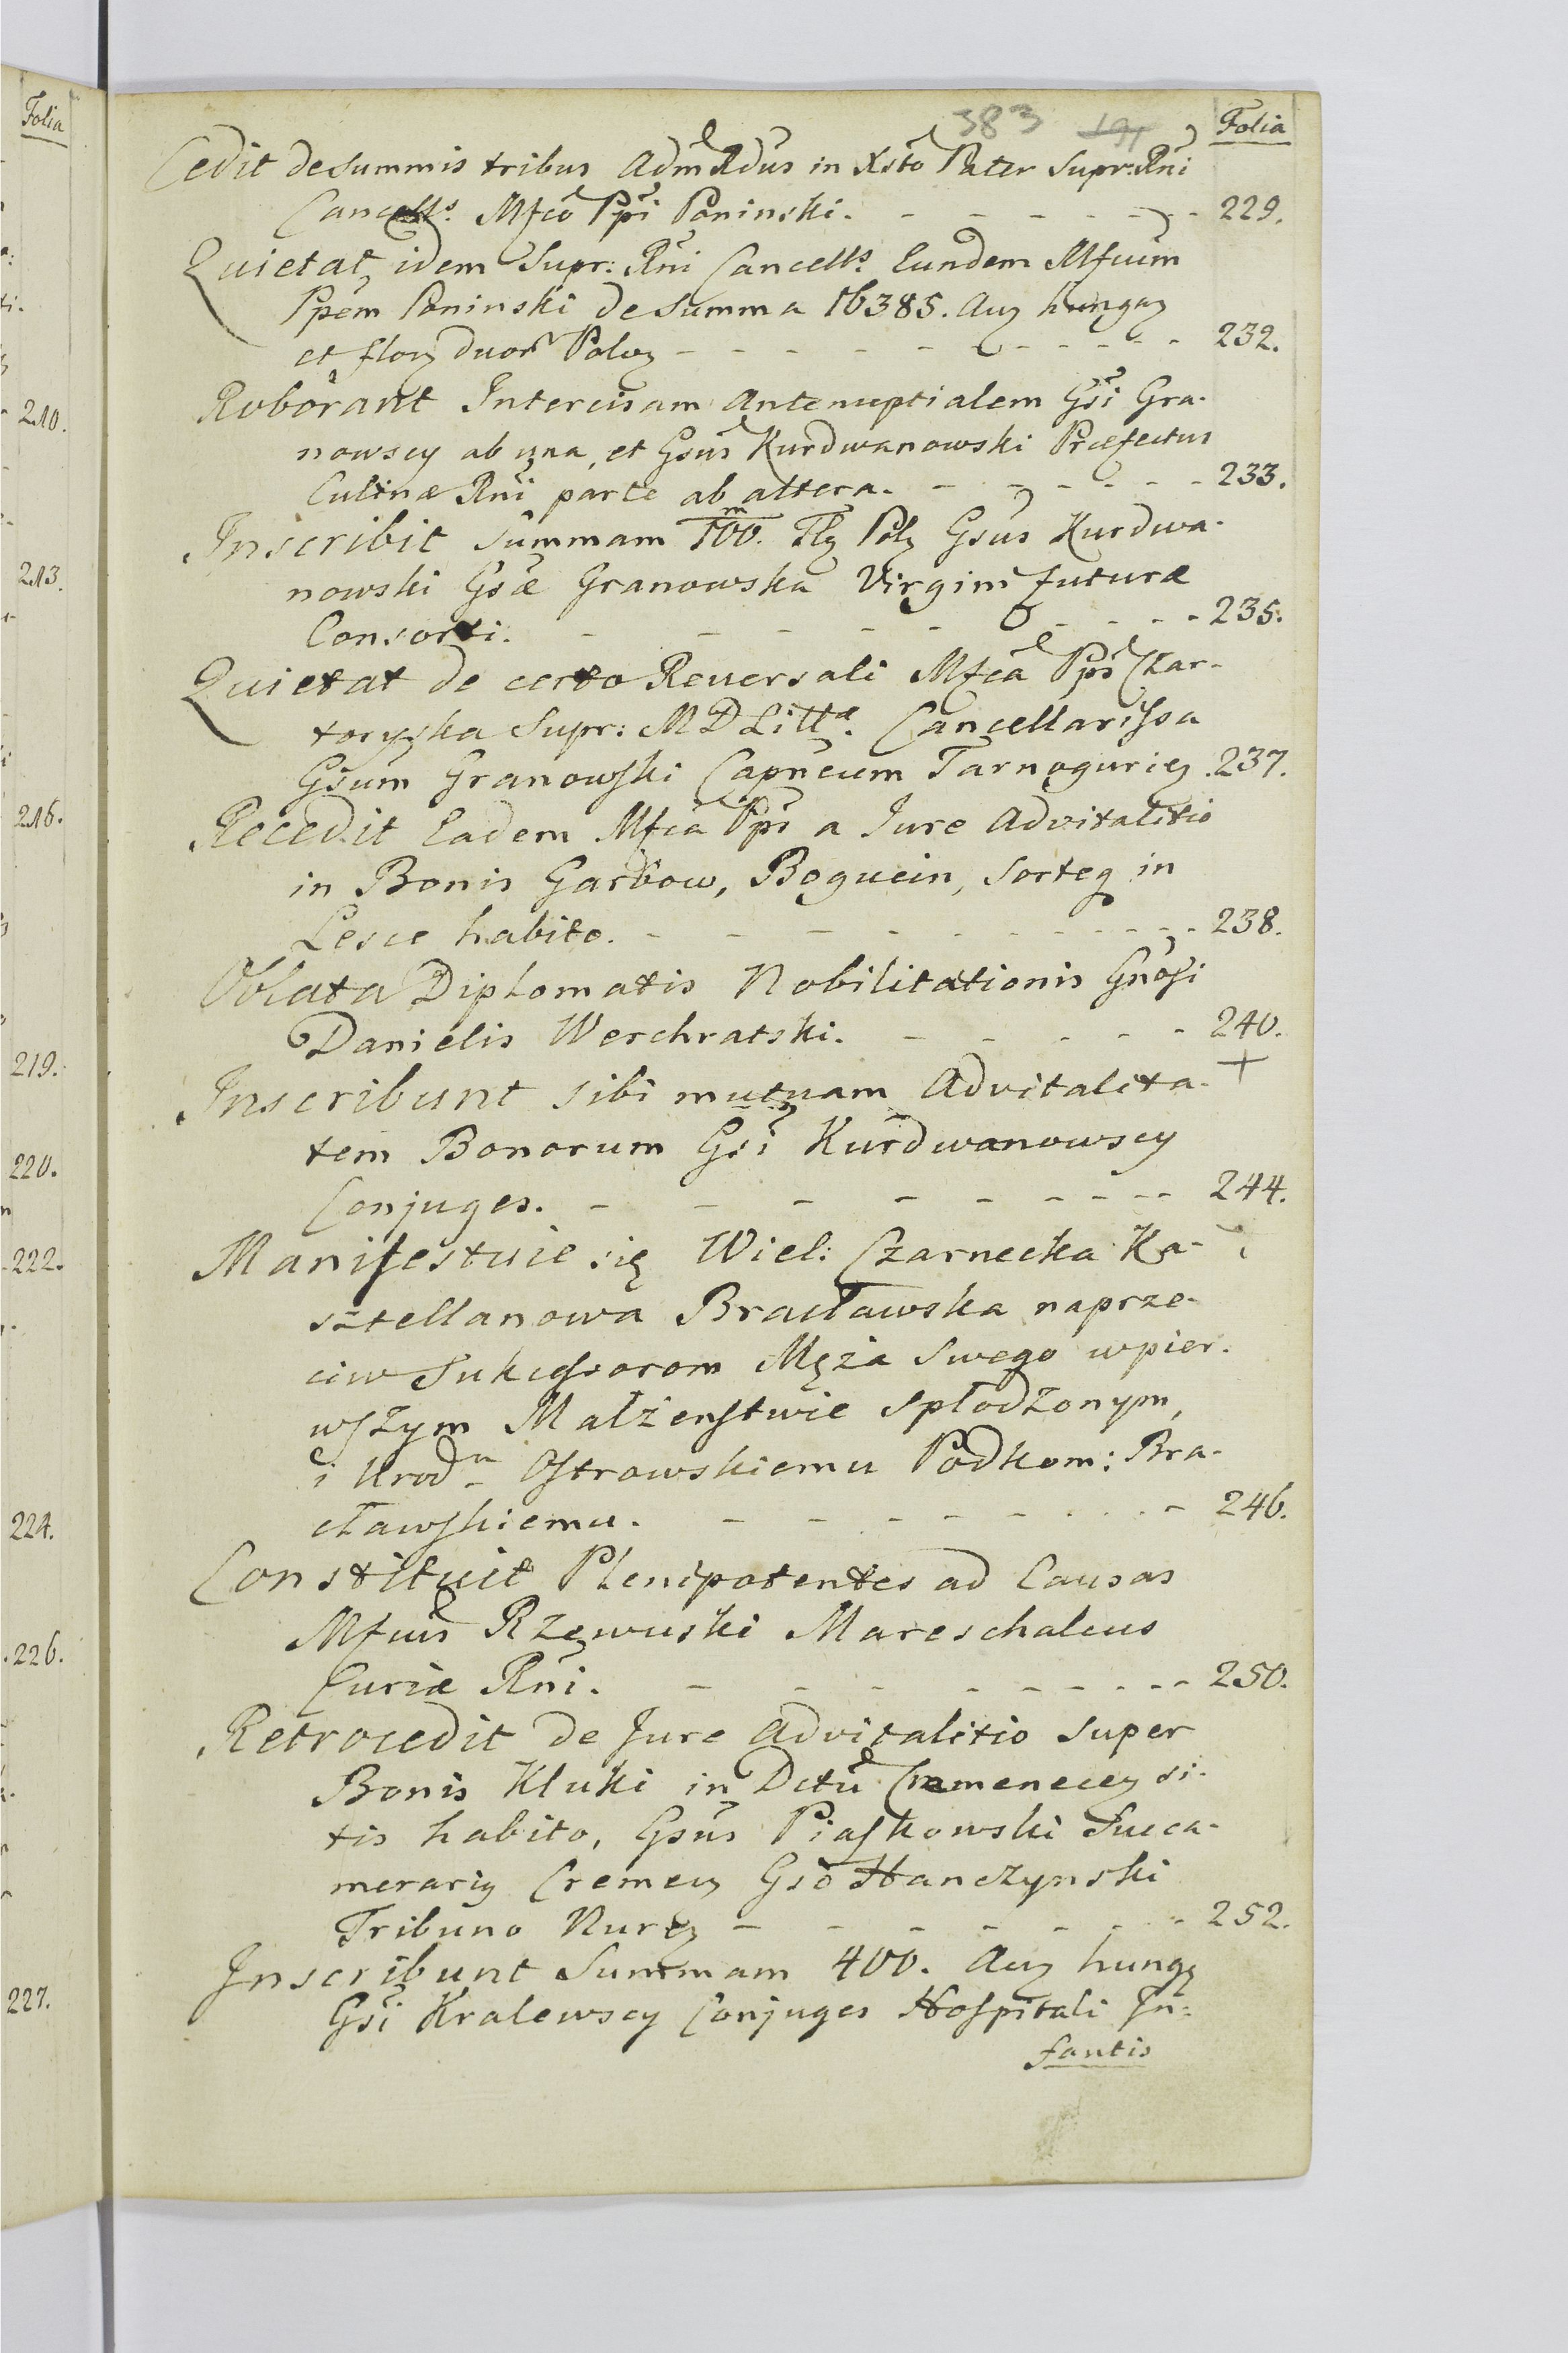 Folia
210.
213.
216.
219.
220.
222.
224.
226.
227.
383 191
Folia
Cedit de summis tribus AdmRdus in Xsto Pater Supr: Rni
Cancells. Mfco Ppi Poninski. - - - - - - - 229.
Quietat idem Supr: Rni Cancells. Eundem Mfcum
Ppem Poninski de Summa 16385. Auȝ hungaȝ
et floȝ duor Poloȝ - - - - - - - - - - 232.
Roborant Intercisam Antenuptialem Gsi Gra-
nowscy ab una, et Gsus Kurdwanowski Præfectus
Culinæ Rni parte ab altera. - - - - - - 233.
Inscribit Summam 100.m Flȝ Polȝ Gsus Kurdwa-
nowski Gsæ Granowska Virgini futuræ
Consorti. - - - - - - - - - 235.
Quietat de certo Reversali Mfca Pps Czar-
toryska Supr: M D Littæ. Cancellarissa
Gsum Granowski Capneum Tarnoguriȝ. 237.
Recedit Eadem Mfca Pps a Jure Advitalitio
in Bonis Garbow, Bogucin, Sorteq in
Lesce habito. - - - - - - - - - - 238.
Oblata Diplomatis Nobilitationis Gnosi
Danielis Werchratski. - - - - - 240.
+
Inscribunt sibi mutuam Advitalita-
tem Bonorum Gsi Kurdwanowscy
Conjuges. - - - - - - - - - 244.
Manifestuie się Wiel: Czarnecka Ka-
sztellanowa Bracławska naprze-
ciw Sukcessorom Męża Swego wpier-
wszym Małżenstwie Spłodzonym,
i Urodu Ostrowskiemu Podkom: Bra-
cławskiemu. - - - - - - - - 246.
Constituit Plenipotentes ad Causas
Mfcus Rzewuski Mareschalcus
Curiæ Rni. - - - - - - - - - 250.
Retrocedit de Jure Advitalitio super
Bonis Kluki in Dctu Cremeneceȝ si-
tis habito, Gsus Piaskowski Succa-
merariȝ Cremeȝ Gso Hanczynski
Tribuno Nurȝ - - - - - - - - 252.
Inscribunt Summam 400. Auȝ hungȝ
Gsi Kralewscy Conjuges Hospitali In-
fantis